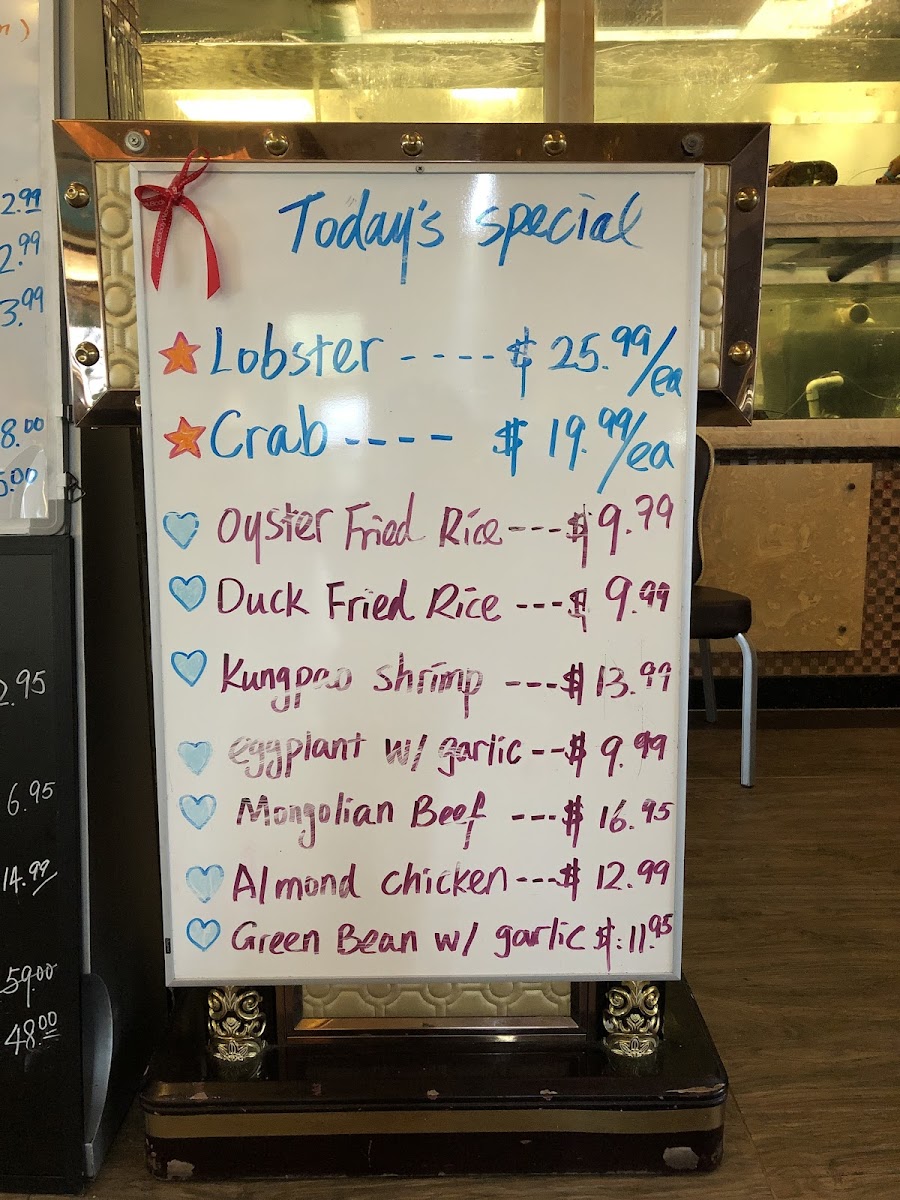 Today's special
Lobster ---- $ 25.99/ea
Crab ---- $ 19.99/ea
Oyster Fried Rice --- $ 9.79
Duck Fried Rice --- $ 9.99
Kungpao shrimp --- $ 13.99
eggplant w/ garlic -- $ 9.99
Mongolian Beef --- $ 16.95
Almond chicken --- $ 12.99
Green Bean w/ garlic $ 11.95
2.99
2.99
3.99
8.00
5.00
2.95
6.95
14.99
59.00
48.00